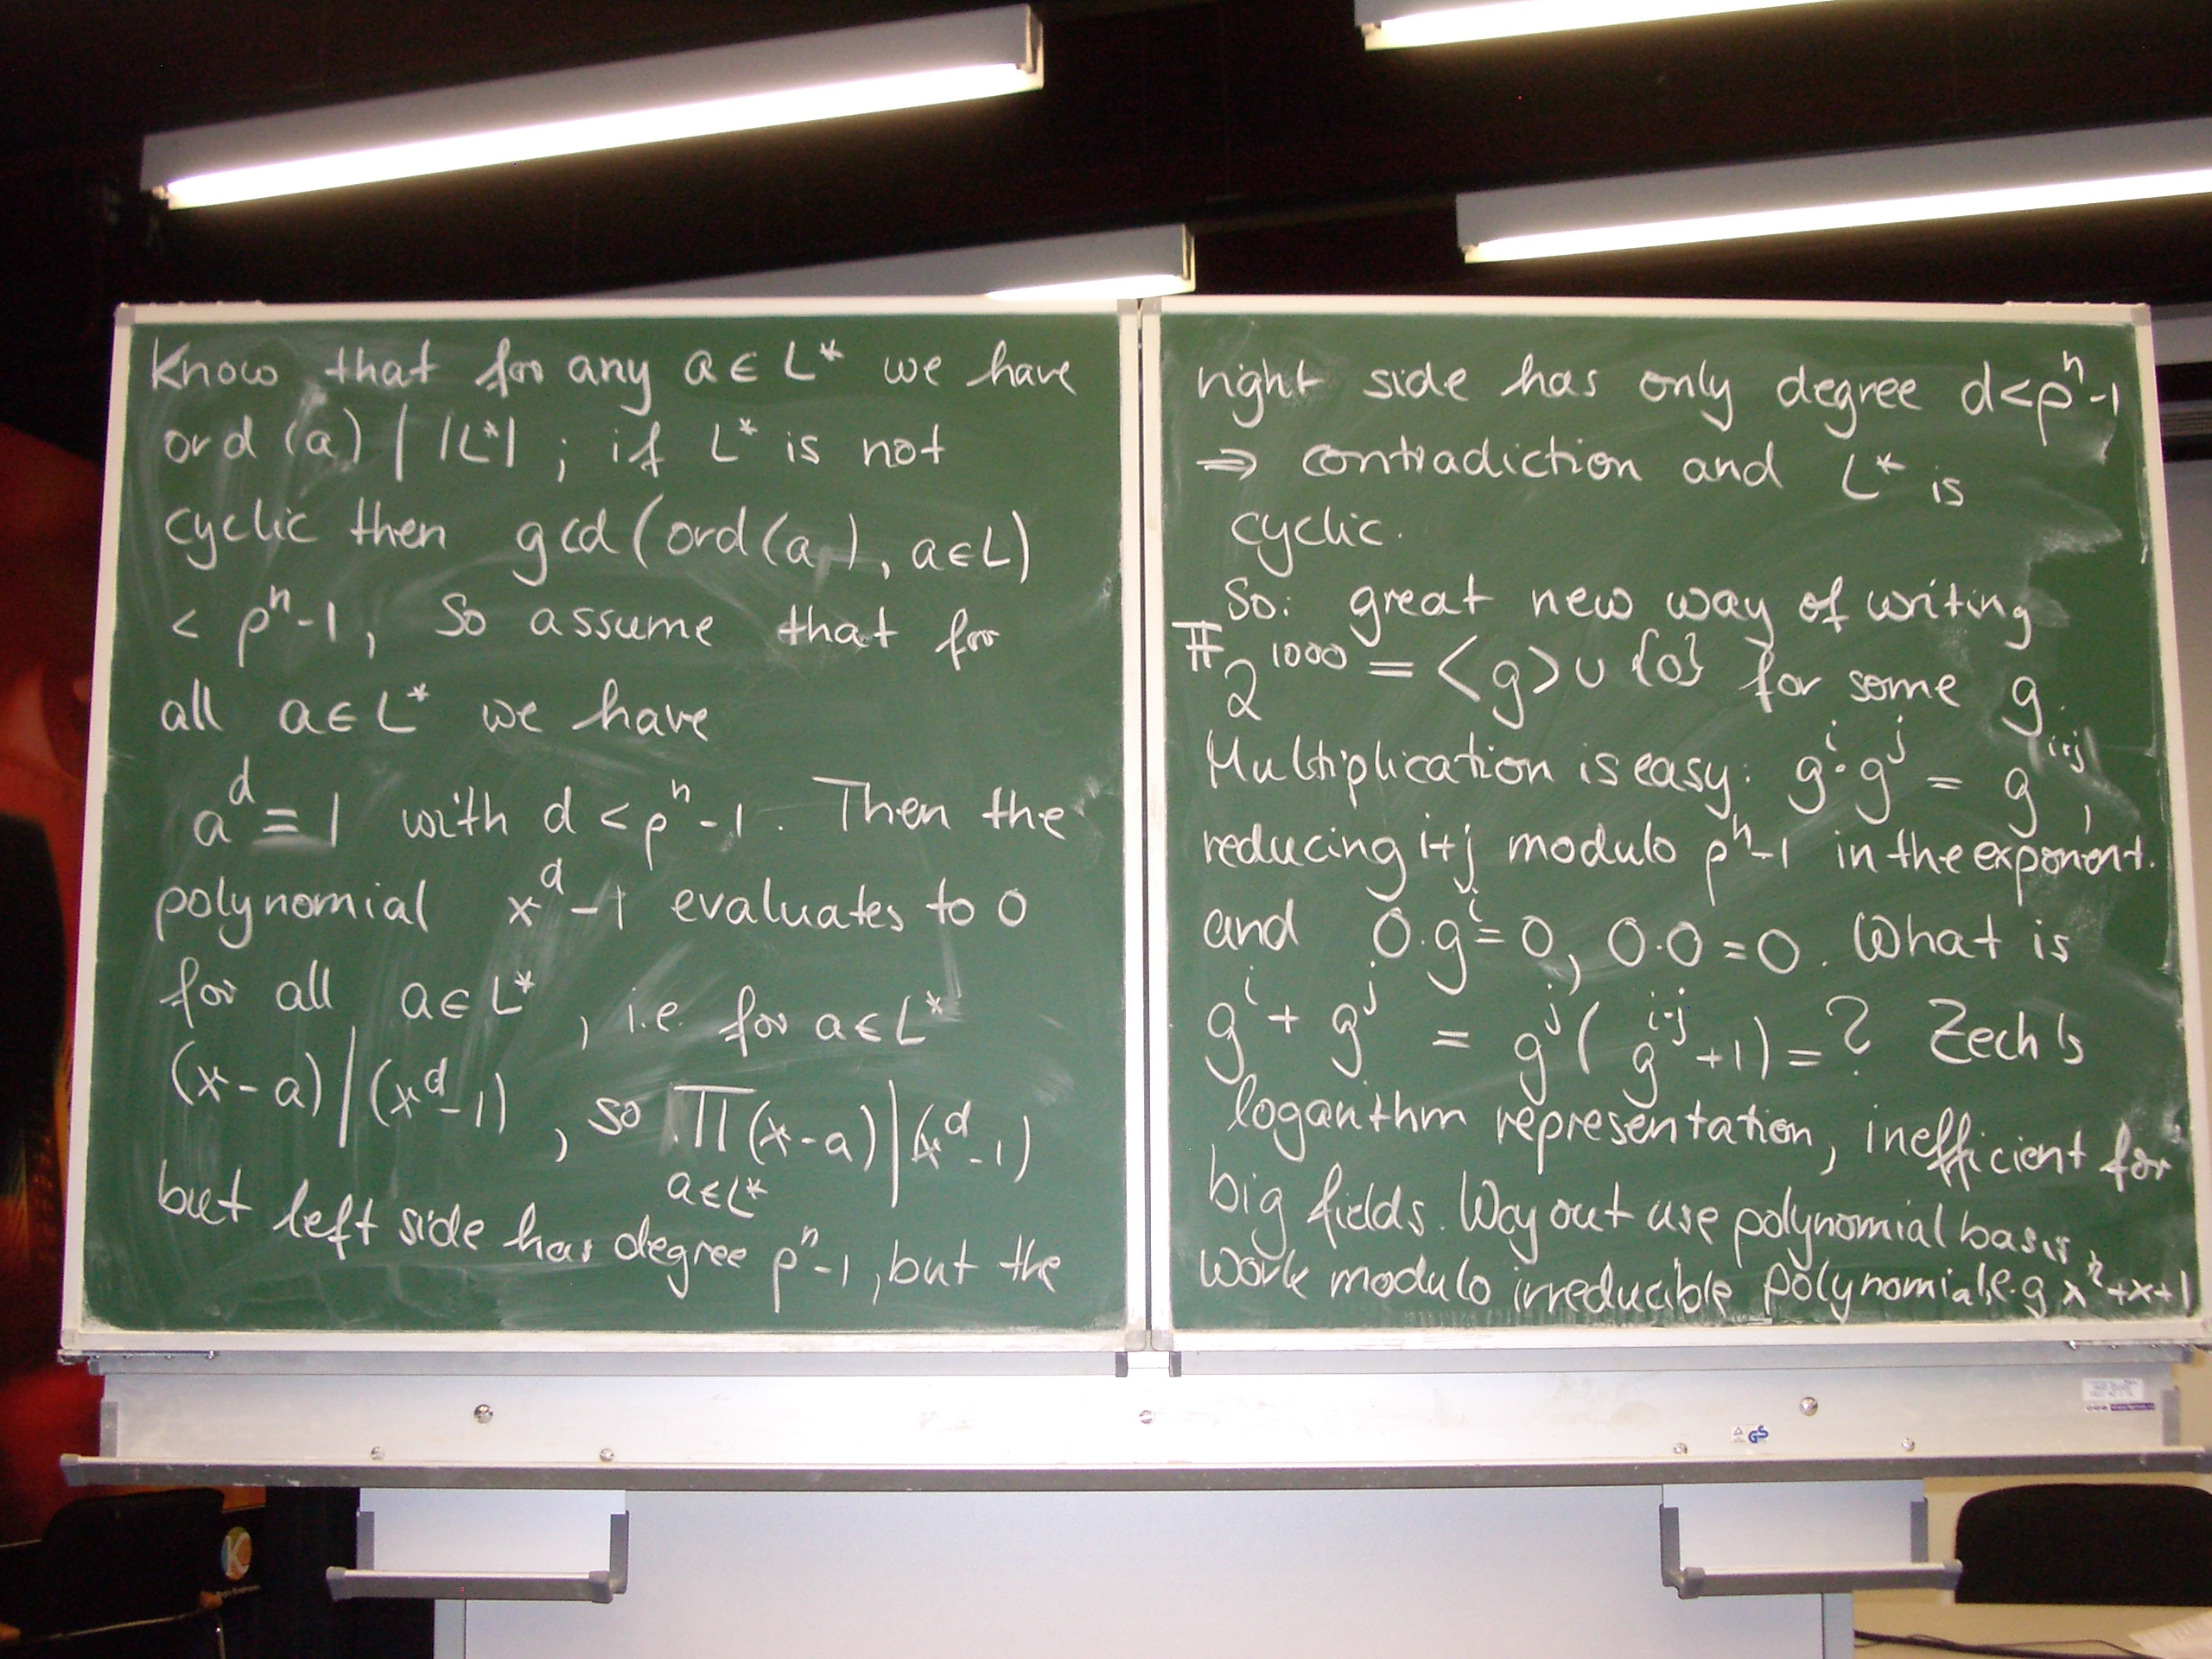 Know that for any a ∈ L* we have
ord (a) | |L*| ; if L* is not
cyclic then gcd (ord (a), a∈L)
< pⁿ-1, So assume that for
all a ∈ L* we have
a^d = 1 with d < pⁿ-1. Then the
polynomial x^d - 1 evaluates to 0
for all a ∈ L*, i.e. for a ∈ L*
(x-a) | (x^d-1), so ∏ (x-a) | (x^d-1)
a∈L*
but left side has degree pⁿ-1, but the
right side has only degree d < pⁿ-1
⇒ contradiction and L* is
cyclic.
So: great new way of writing
𝔽_2^1000 = <g> ∪ {0} for some g.
Multiplication is easy: g^i · g^j = g^i+j,
reducing i+j modulo pⁿ-1 in the exponent.
and 0·g^i = 0, 0·0 = 0. What is
g^i + g^j = g^j (g^i-j + 1) = ? Zech's
logarithm representation, inefficient for
big fields. Way out use polynomial basis,
work modulo irreducible polynomial, e.g x²+x+1
GS
K